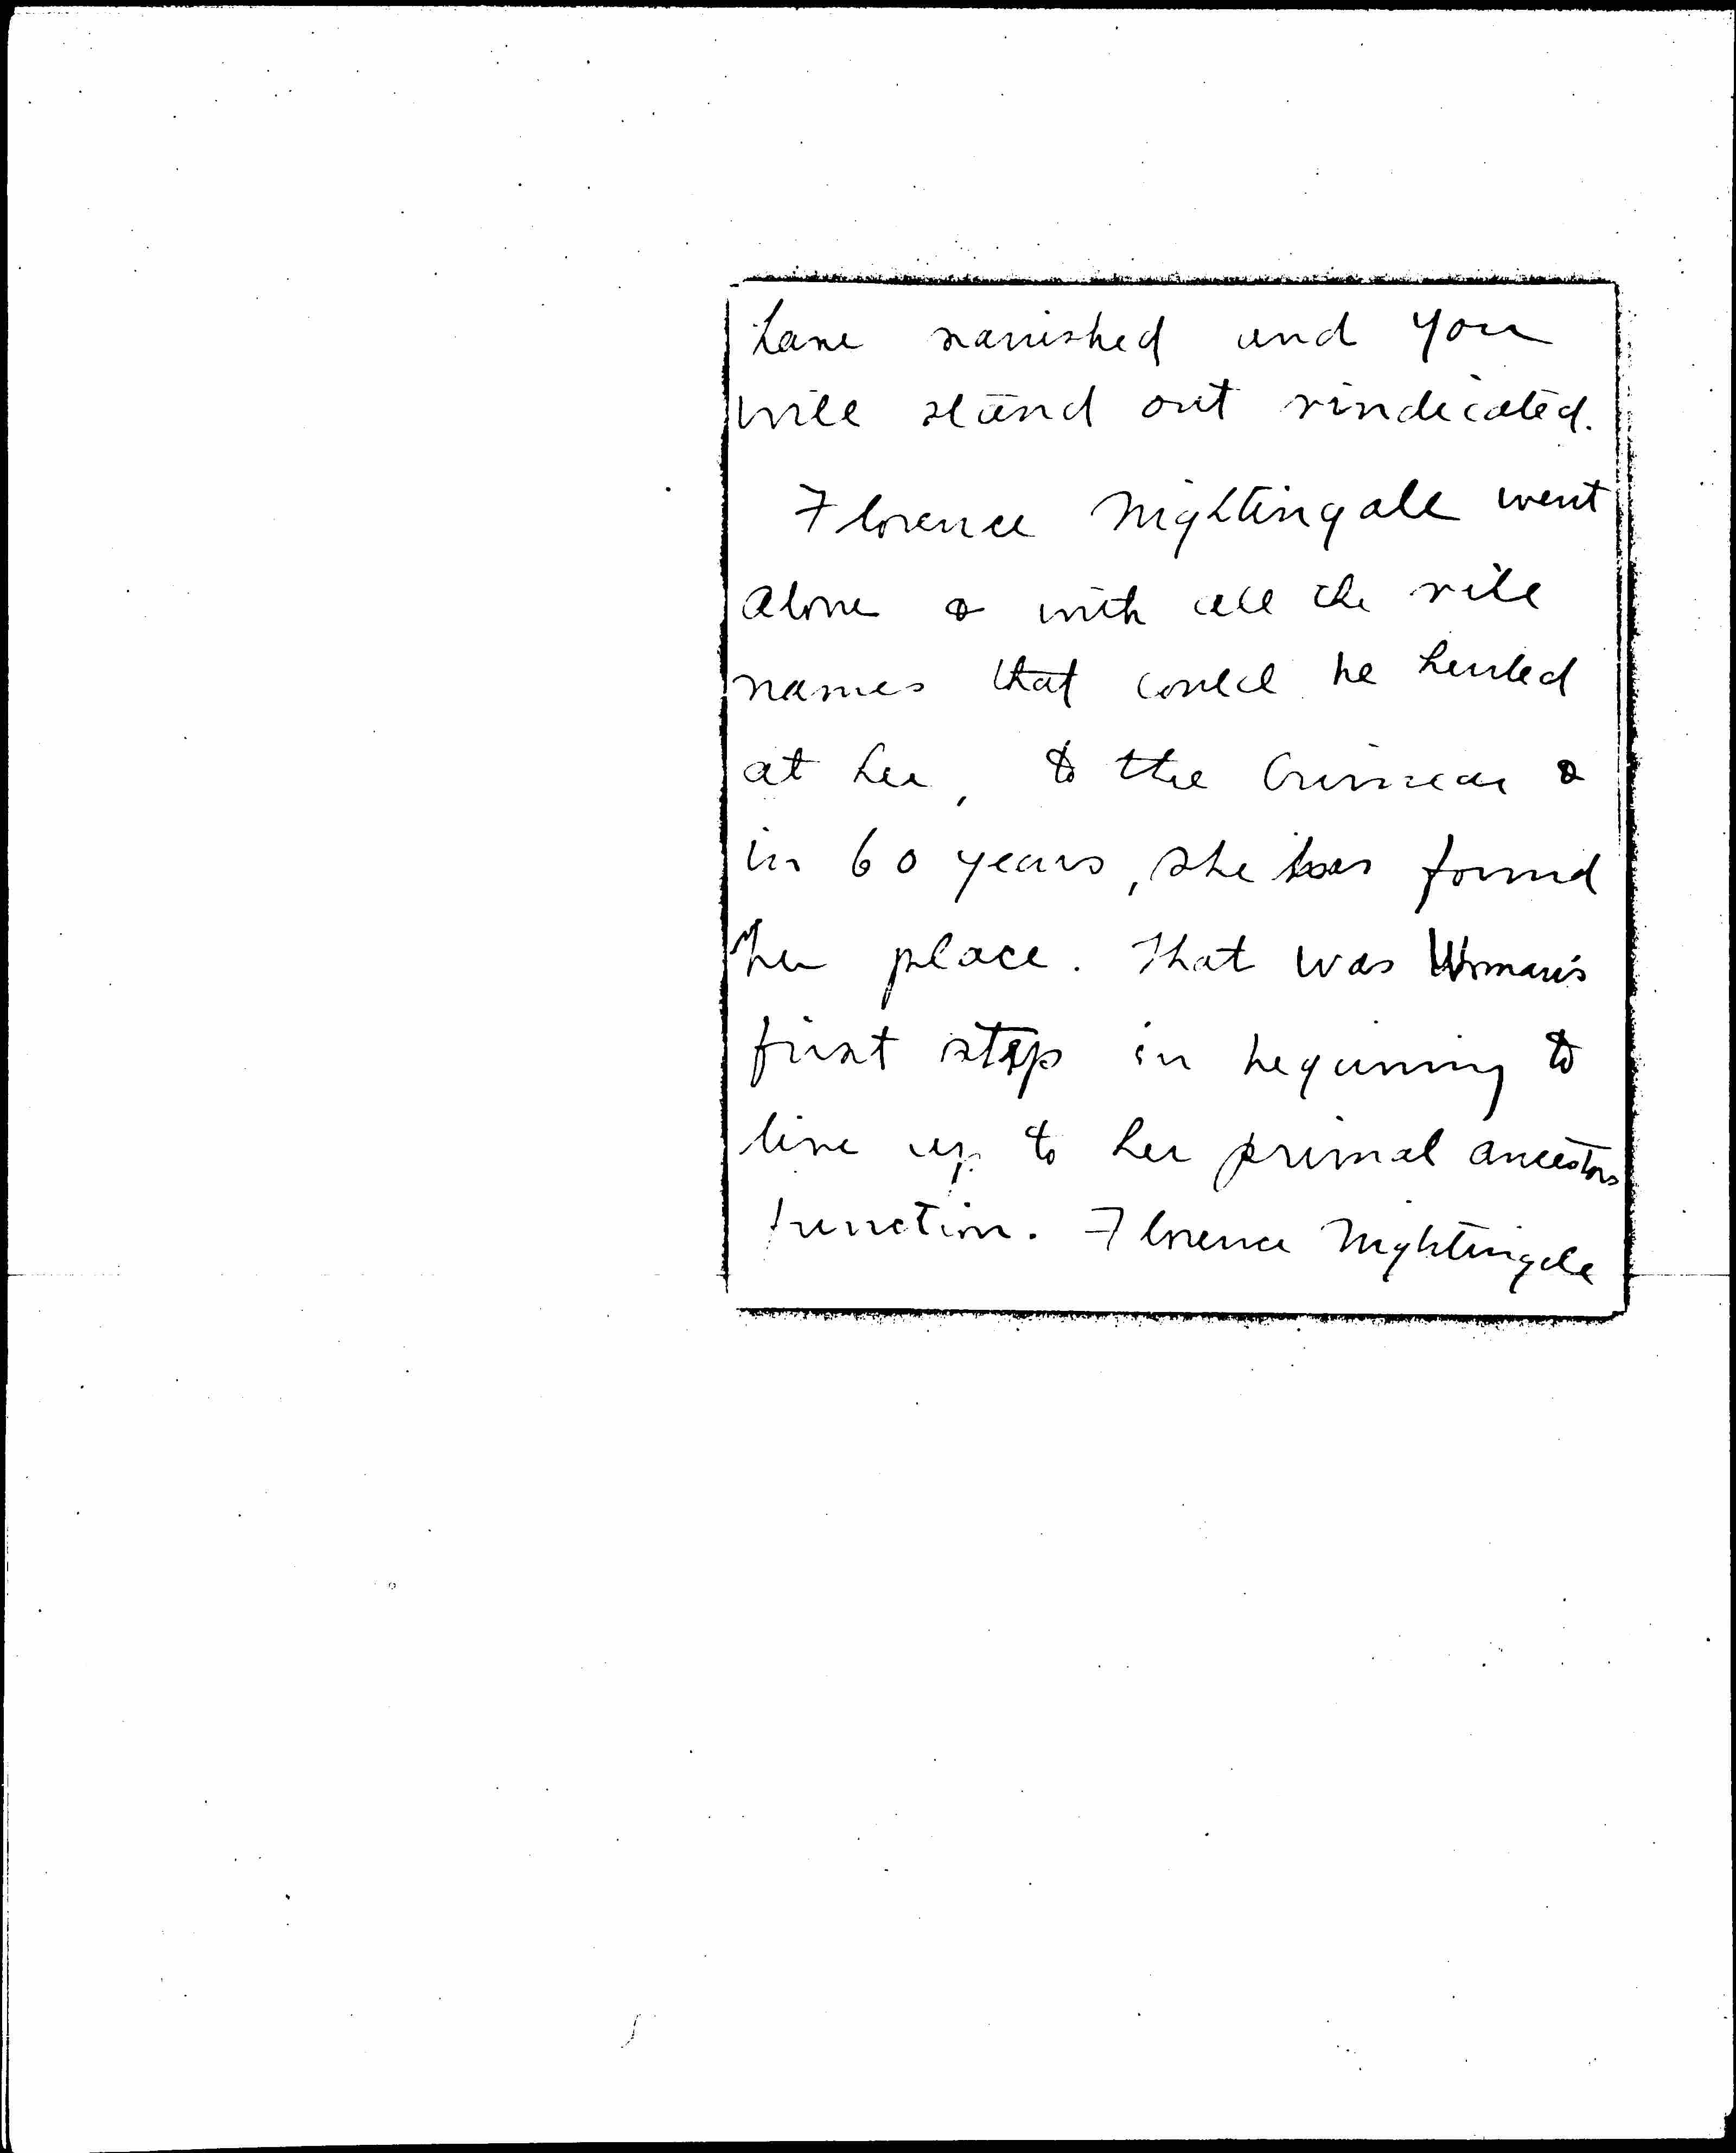 have vanished and you
will stand out vindicated.
Florence Nightingale went
alone & with all the vile
names that could be hurled
at her, to the Crimear &
in 60 years, she has found
her place. That was Woman's
first step in beginning to
live up to her primal ancestors
function. Florence Nightingale